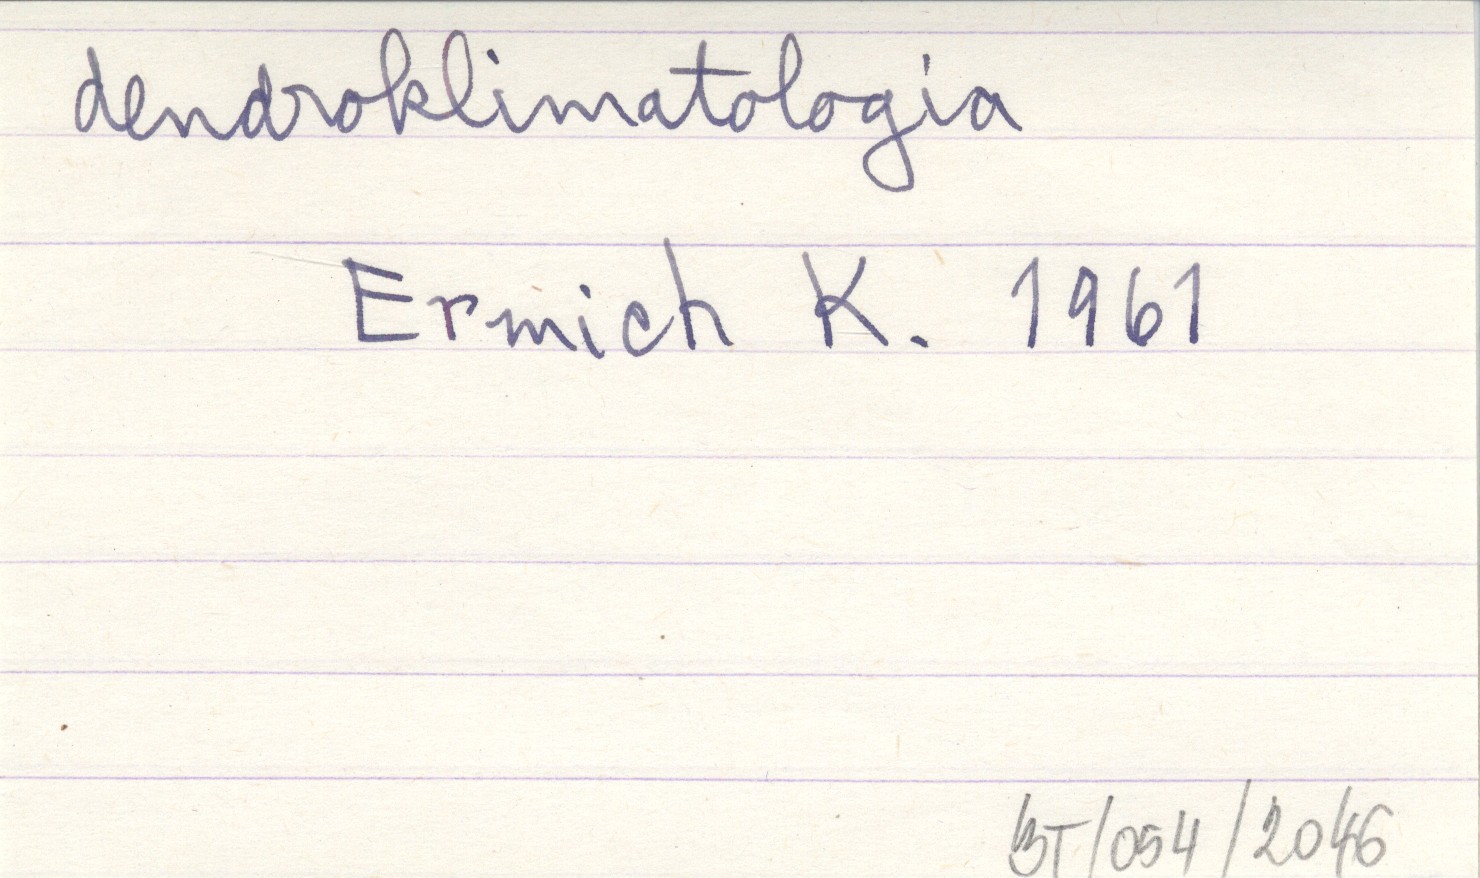 dendroklimatologia
Ermich K. 1961
BT/054/2046